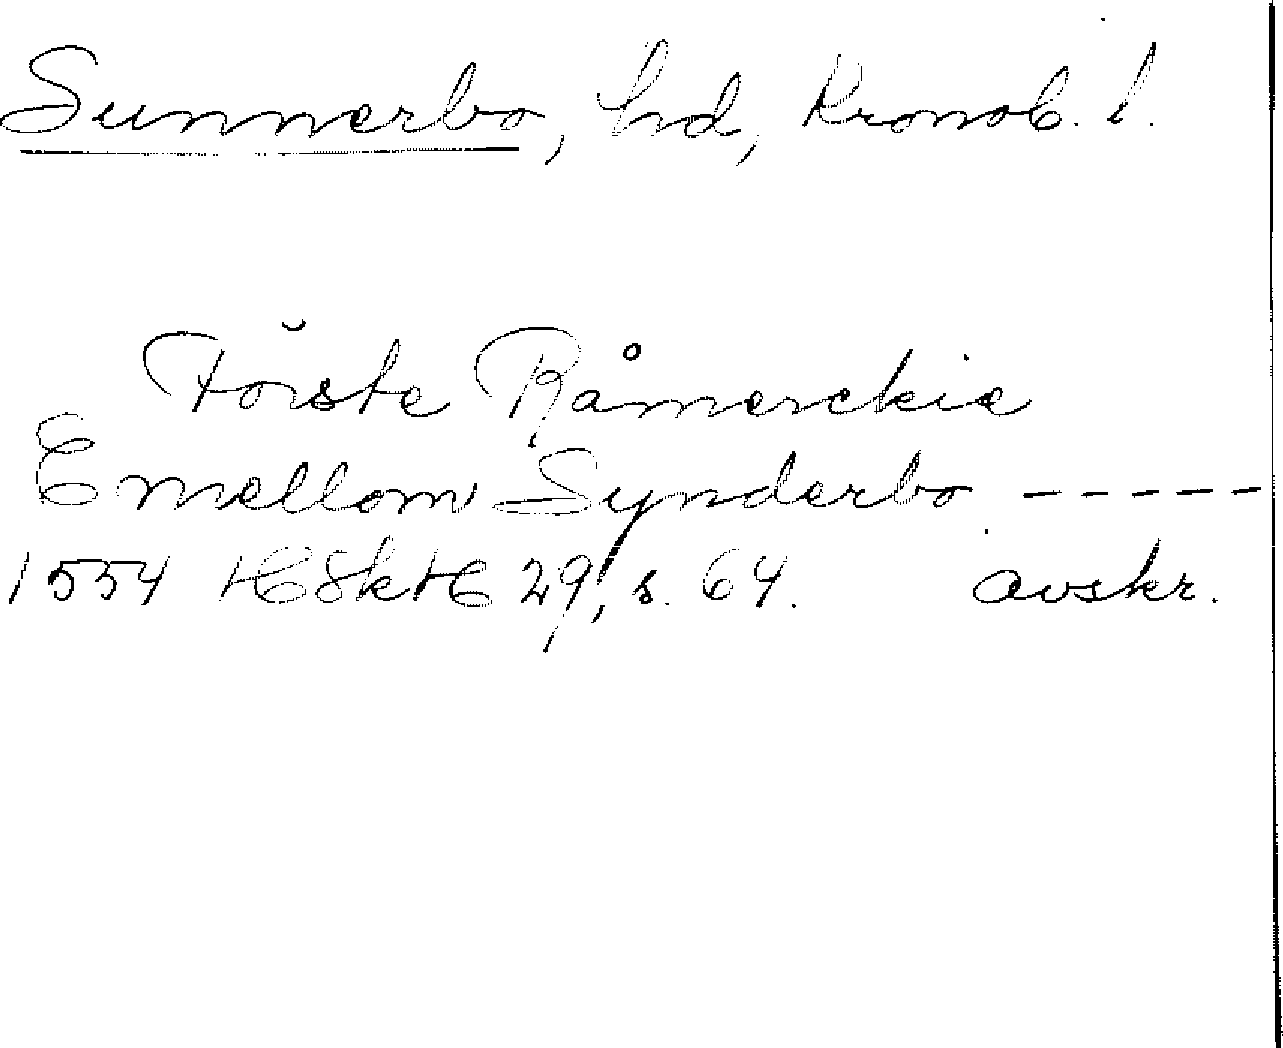 Sunnerbo, hd, Kronob. l.
Förste Råmerckie
Emellom Synderbo -----
1554 HSkH 29, s. 64. avskr.